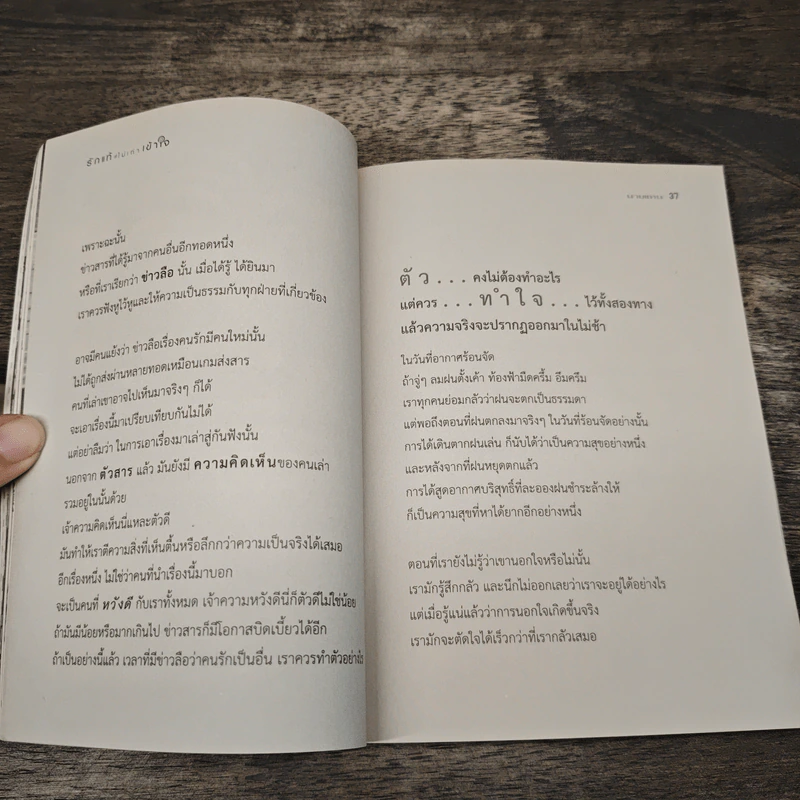 รักแท้ เข้าใจ
เพราะฉะนั้น
ข่าวสารที่ได้รู้มาจากคนอื่นอีกทอดหนึ่ง
หรือที่เราเรียกว่า ข่าวลือ นั้น เมื่อได้รู้ ได้ยินมา
เราควรฟังหูไว้หูและให้ความเป็นธรรมกับทุกฝ่ายที่เกี่ยวข้อง
อาจมีคนแย้งว่า ข่าวลือเรื่องคนรักมีคนใหม่นั้น
ไม่ได้ถูกส่งผ่านหลายทอดเหมือนเกมส่งสาร
คนที่เล่าเขาอาจไปเห็นมาจริงๆ ก็ได้
จะเอาเรื่องนี้มาเปรียบเทียบกันไม่ได้
แต่อย่าลืมว่า ในการเอาเรื่องมาเล่าสู่กันฟังนั้น
นอกจาก ตัวสาร แล้ว มันยังมี ความคิดเห็นของคนเล่า
รวมอยู่ในนั้นด้วย
เจ้าความคิดเห็นนี่แหละตัวดี
มันทำให้เราตีความสิ่งที่เห็นตื้นหรือลึกกว่าความเป็นจริงได้เสมอ
อีกเรื่องหนึ่ง ไม่ใช่ว่าคนที่นำเรื่องนี้มาบอก
จะเป็นคนที่ หวังดี กับเราทั้งหมด เจ้าความหวังดีนี่ก็ตัวดีไม่ใช่น้อย
ถ้ามันมีน้อยหรือมากเกินไป ข่าวสารก็มีโอกาสบิดเบี้ยวได้อีก
ถ้าเป็นอย่างนี้แล้ว เวลาที่มีข่าวลือว่าคนรักเป็นอื่น เราควรทำตัวอย่างไร
37
ตัว... คงไม่ต้องทำอะไร
แต่ควร ...ทำใจ... ไว้ทั้งสองทาง
แล้วความจริงจะปรากฏออกมาในไม่ช้า
ในวันที่อากาศร้อนจัด
ถ้าจู่ๆ ลมฝนตั้งเค้า ท้องฟ้ามืดครึ้ม อึมครึม
เราทุกคนย่อมกลัวว่าฝนจะตกเป็นธรรมดา
แต่พอถึงตอนที่ฝนตกลงมาจริงๆ ในวันที่ร้อนจัดอย่างนั้น
การได้เดินตากฝนเล่น ก็นับได้ว่าเป็นความสุขอย่างหนึ่ง
และหลังจากที่ฝนหยุดตกแล้ว
การได้สูดอากาศบริสุทธิ์ที่ละอองฝนชำระล้างให้
ก็เป็นความสุขที่หาได้ยากอีกอย่างหนึ่ง
ตอนที่เรายังไม่รู้ว่าเขานอกใจหรือไม่นั้น
เรามักรู้สึกกลัว และนึกไม่ออกเลยว่าเราจะอยู่ได้อย่างไร
แต่เมื่อรู้แน่แล้วว่าการนอกใจเกิดขึ้นจริง
เรามักจะตัดใจได้เร็วกว่าที่เรากลัวเสมอ